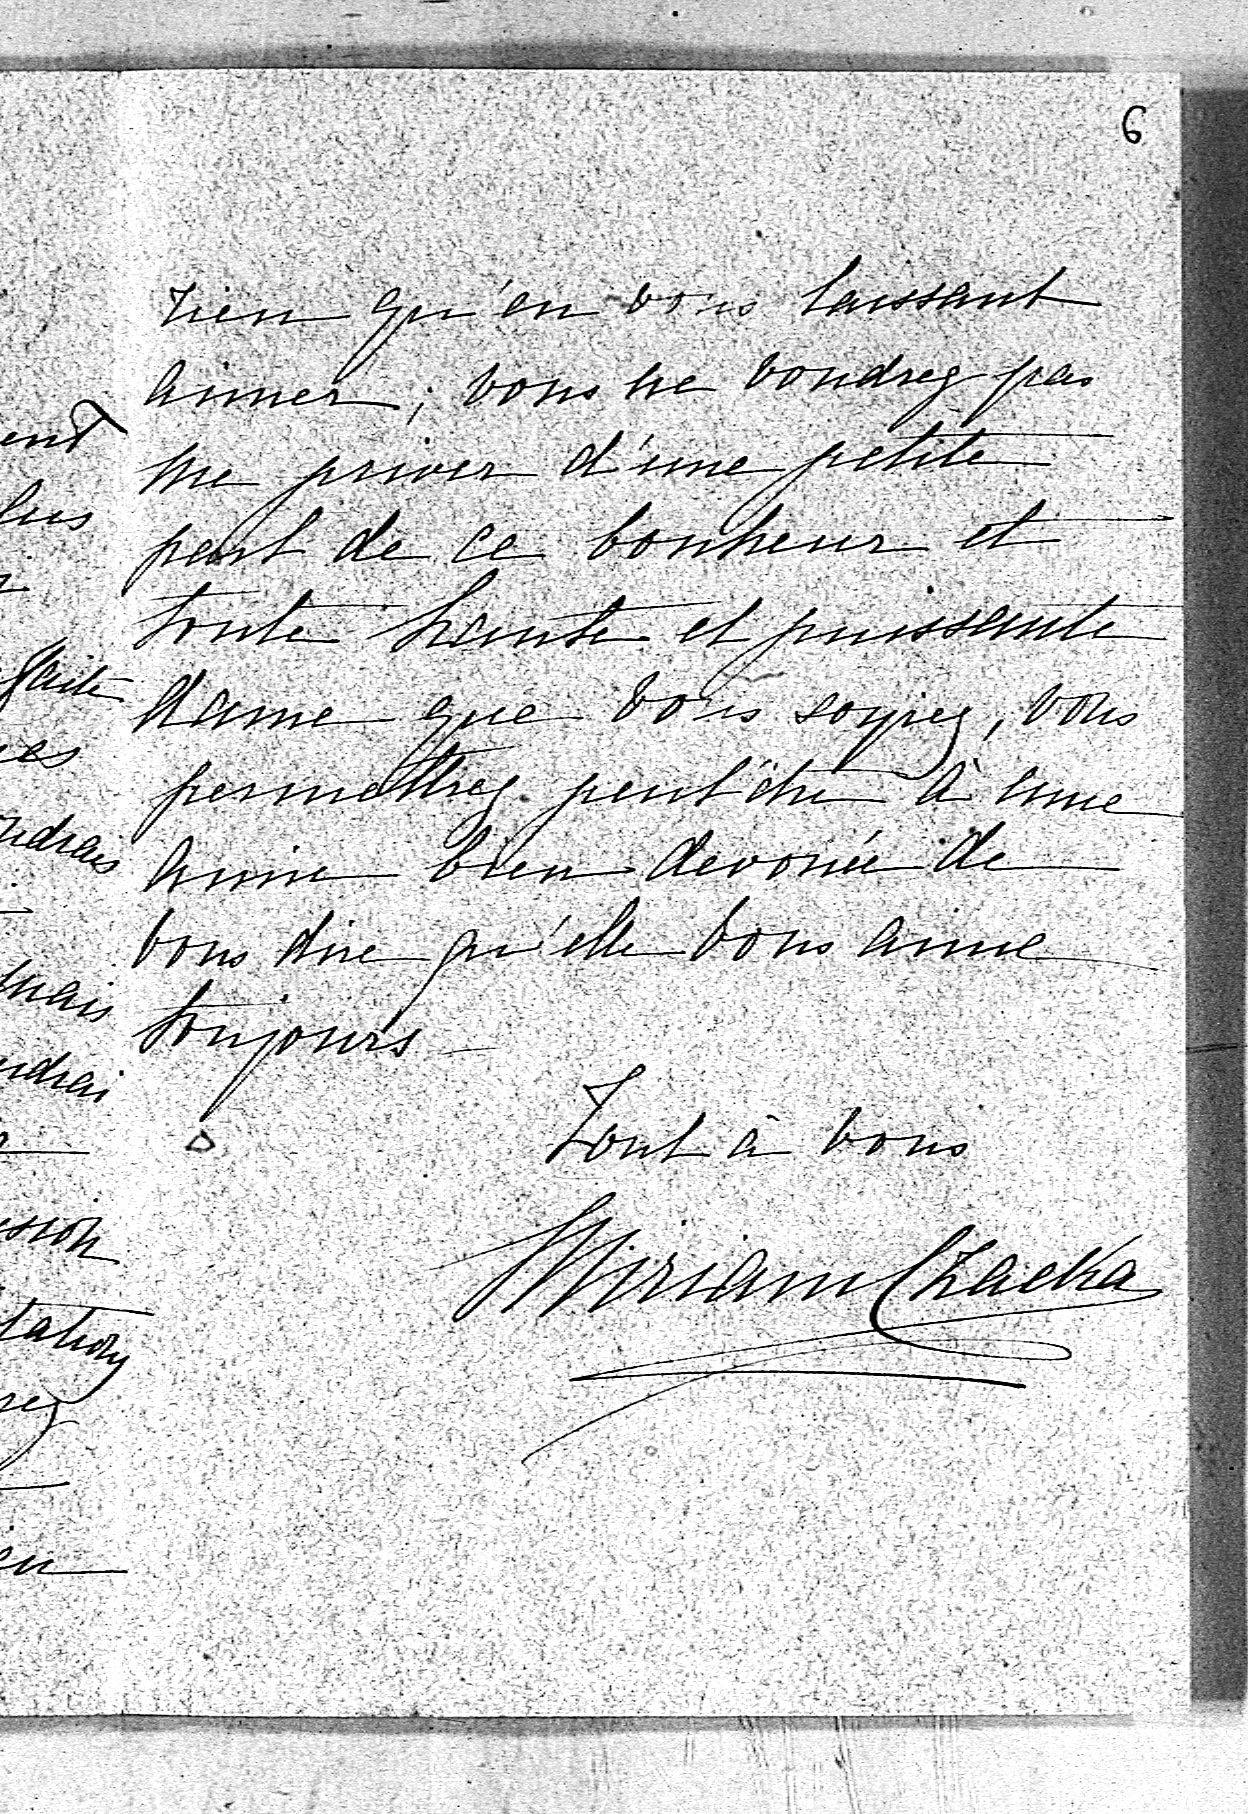 6
rien qu'en vous laissant
aimer; vous ne voudrez pas
me priver d'une petite
part de ce bonheur et
toute haute et puissante
dame que vous soyiez, vous
permettrez peut'être à une
amie bien devouée de
vous dire qu'elle vous aime
toujours
Tout à vous
Miriam
faite
mais